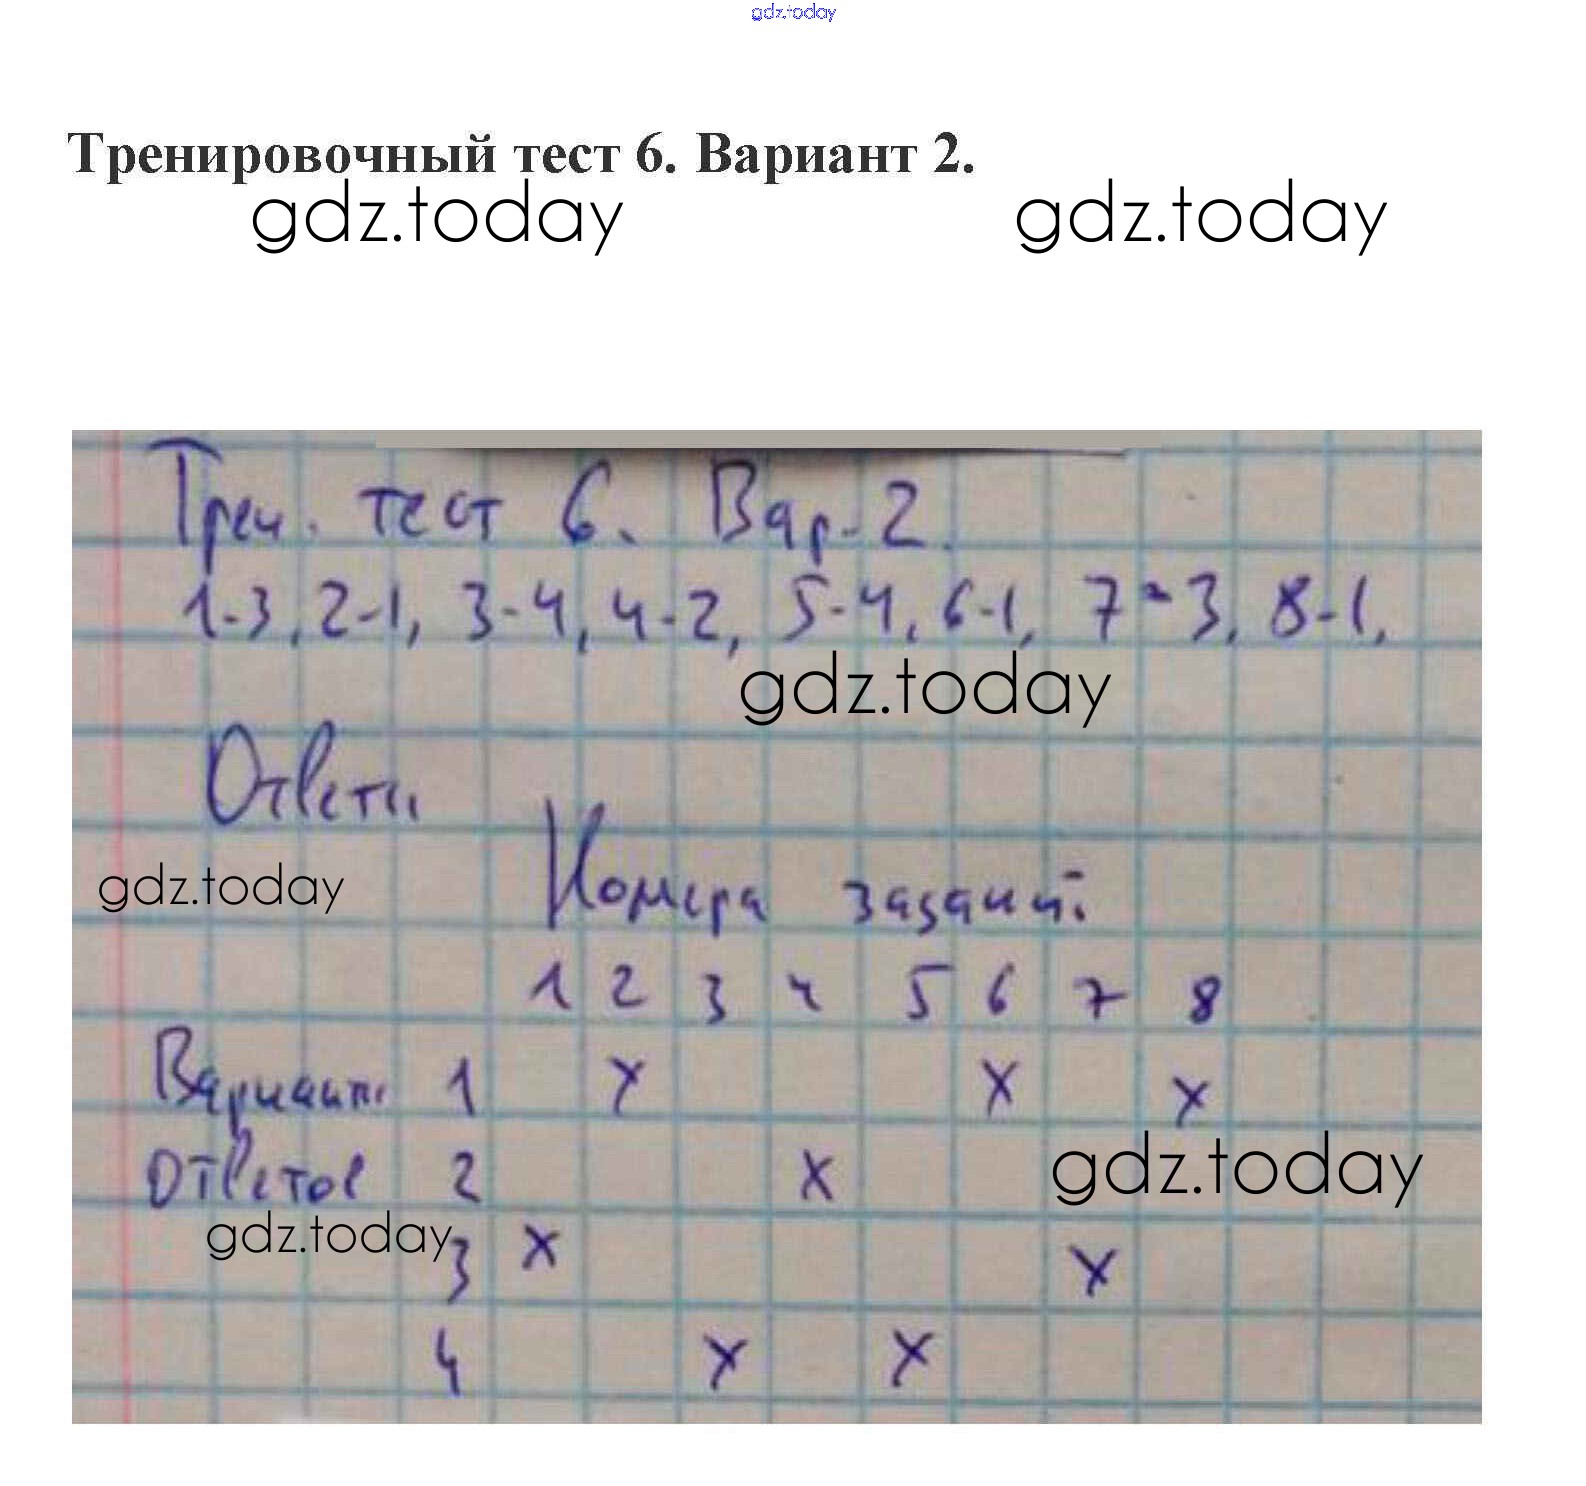 gdz.today
Тренировочный тест 6. Вариант 2.
gdz.today gdz.today
Трен. тест 6. Вар-2.
1-3, 2-1, 3-4, 4-2, 5-4, 6-1, 7-3, 8-1,
gdz.today
Ответы
gdz.today
Номера заданий.
1 2 3 4 5 6 7 8
Варианты 1 x x x
ответов 2 x
gdz.today
gdz.today
3 x x
4 x x